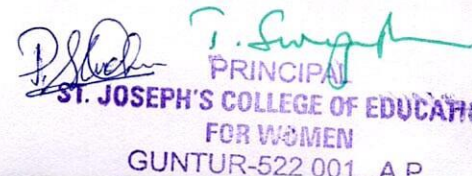 PRINCIPAL
ST. JOSEPH'S COLLEGE OF EDUCATIO
FOR WOMEN
GUNTUR-522 001 A.P.